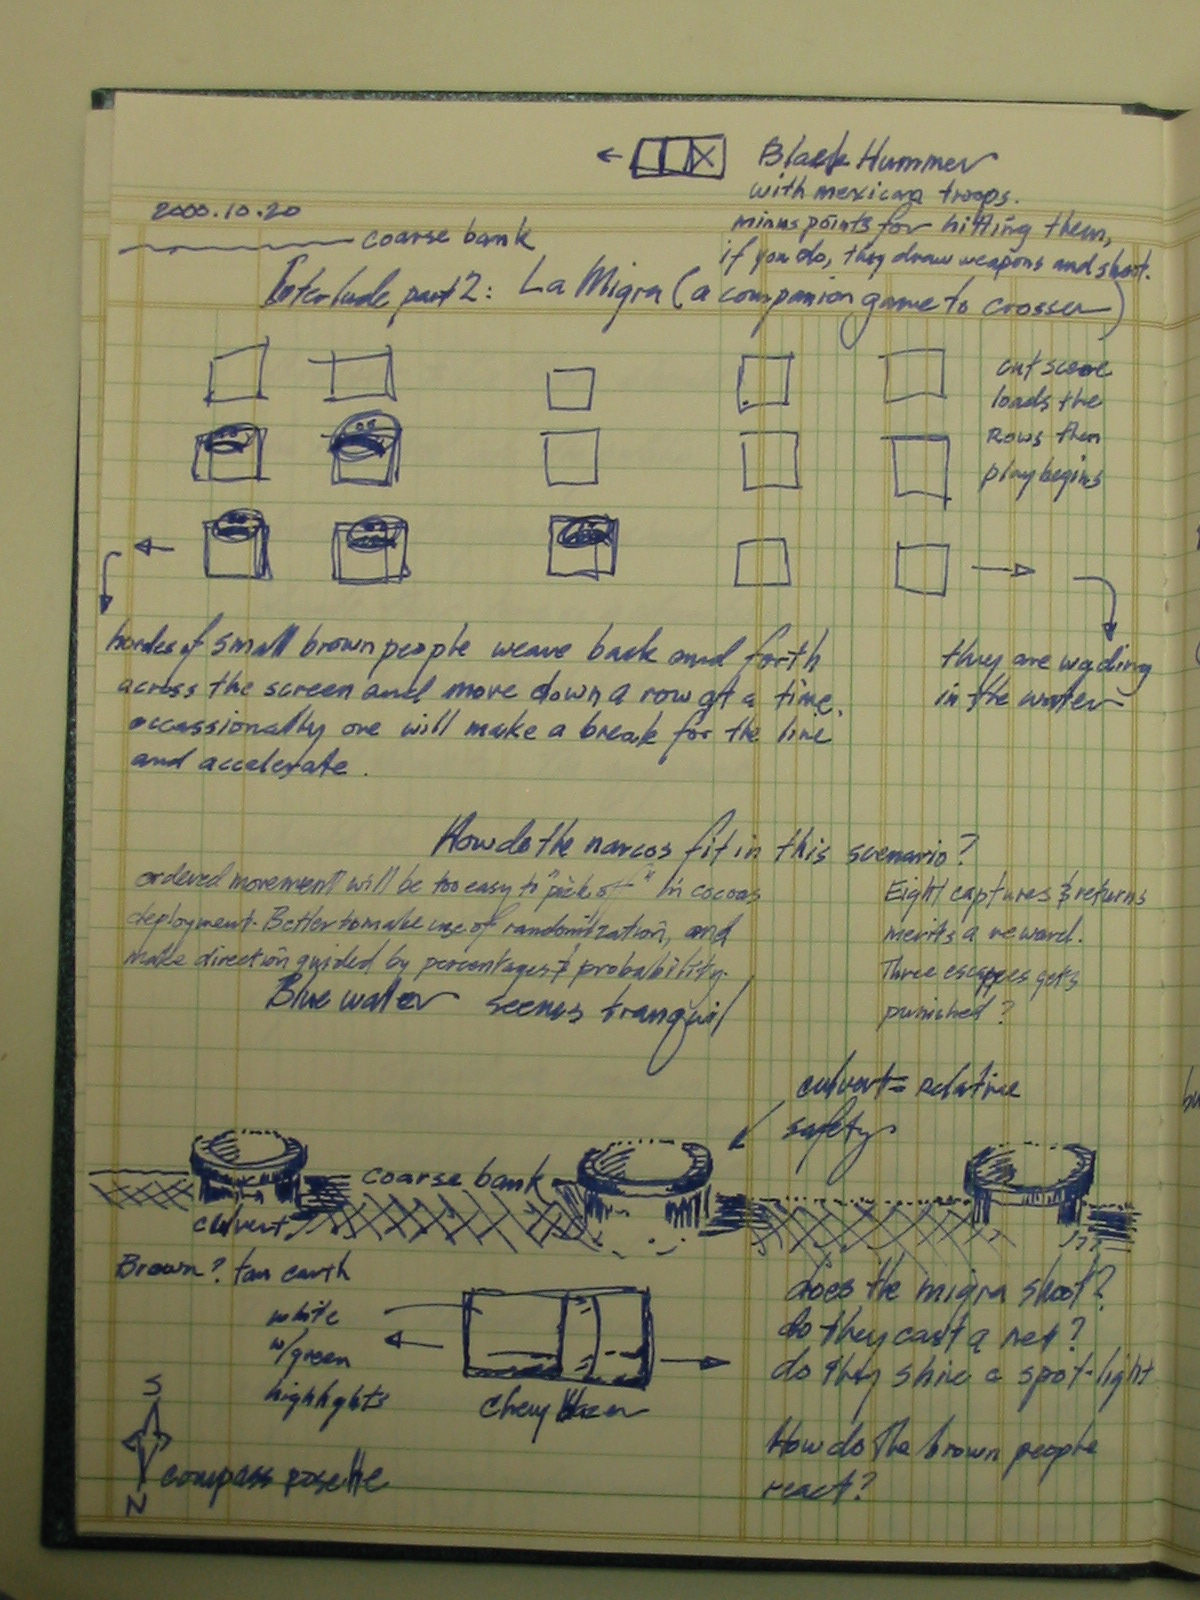 Black Hummer
with mexican troops.
minus points for hitting them,
if you do, they draw weapons and shoot.
2000.10.20
coarse bank
Interlude part 2: La Migra (a companion game to crosser)
cut scene
loads the
rows then
play begins
hordes of small brown people weave back and forth
across the screen and move down a row at a time.
occassionally one will make a break for the line
and accelerate.
they are wading
in the water
How do the narcos fit in this scenario?
ordered movement will be too easy to "pick off" in cocoas
deployment. Better to make use of randomization, and
make direction guided by percentages & probability.
Eight captures & returns
merits a reward.
Three escapees gets
punished?
Blue water seems tranquil
culvert = relative
safety
coarse bank
culvert
Brown? tan earth
white
w/green
highlights
Chevy
does the migra shoot?
do they cast a net?
do they shine a spot-light
How do the brown people
react?
S
N
compass rosette